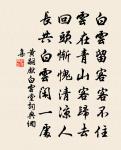 白雲留客客不住
雲在青山客歸去
回頭慚愧清涼人
長共白雲閑一處
黃嗣獻白雲堂詞典網
集